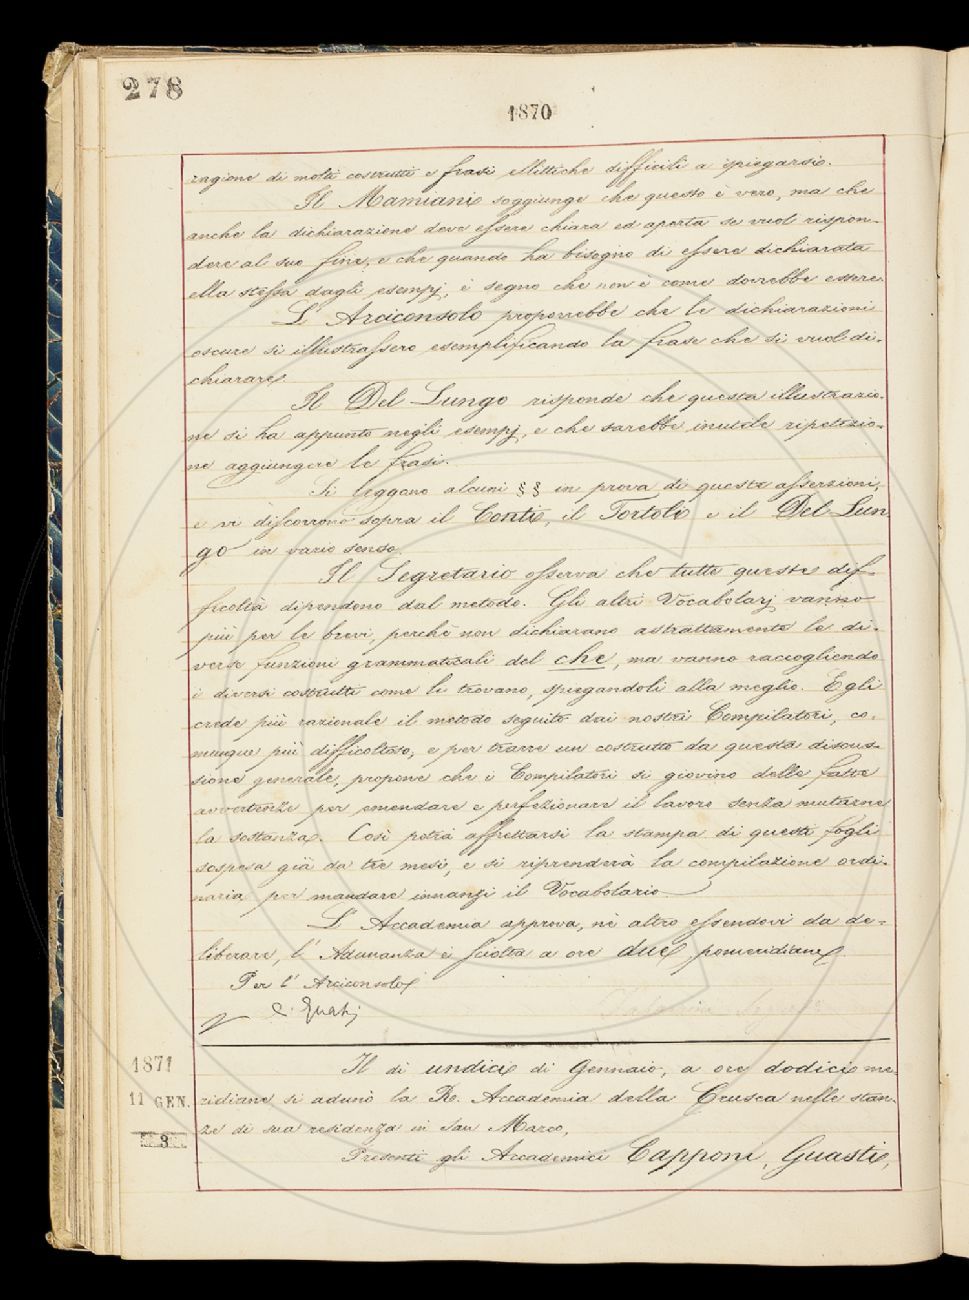 278
1870
ragione di molti costrutti e frasi ellittiche difficili a spiegarsi.
Il Mamiani soggiunge che questo è vero, ma che
anche la dichiarazione deve essere chiara ed aperta se vuol rispon-
dere al suo fine, e che quando ha bisogno di essere dichiarata
ella stessa dagli esempj, è segno che non è come dovrebbe essere.
L'Arciconsolo proporrebbe che le dichiarazioni
oscure si illustrassero esemplificando la frase che si vuol di-
chiarare.
Il Del Lungo risponde che questa illustrazio-
ne si ha appunto negli esempj, e che sarebbe inutile ripetizio-
ne aggiungere le frasi.
Si leggono alcuni §§ in prova di queste asserzioni,
e vi discorrono sopra il Conti, il Tortoli e il Del Lun
go in vario senso.
Il Segretario osserva che tutte queste dif-
ficoltà dipendono dal metodo. Gli altri Vocabolarj vanno
più per le brevi, perchè non dichiarano astrattamente le di-
verse funzioni grammaticali del che, ma vanno raccogliendo
i diversi costrutti come li trovano, spiegandoli alla meglio. Egli
crede più razionale il metodo seguito dai nostri Compilatori, co-
munque più difficoltoso, e per trarre un costrutto da questa discus-
sione generale, propone che i Compilatori si giovino delle fatte
avvertenze per emendare e perfezionare il lavoro senza mutarne
la sostanza. Così potrà affrettarsi la stampa di questi fogli
sospesa già da tre mesi, e si riprenderà la compilazione ordi-
naria per mandare innanzi il Vocabolario
L'Accademia approva, nè altro essendovi da de-
liberare, l'Adunanza è sciolta a ore due pomeridiane.
Per l'Arciconsolo
C. Guasti
1871
11 GEN.
3
Il dì undici di Gennaio, a ore dodici me
ridiane si adunò la R. Accademia della Crusca nelle stan-
ze di sua residenza in San Marco,
Presenti gli Accademici Capponi, Guasti,